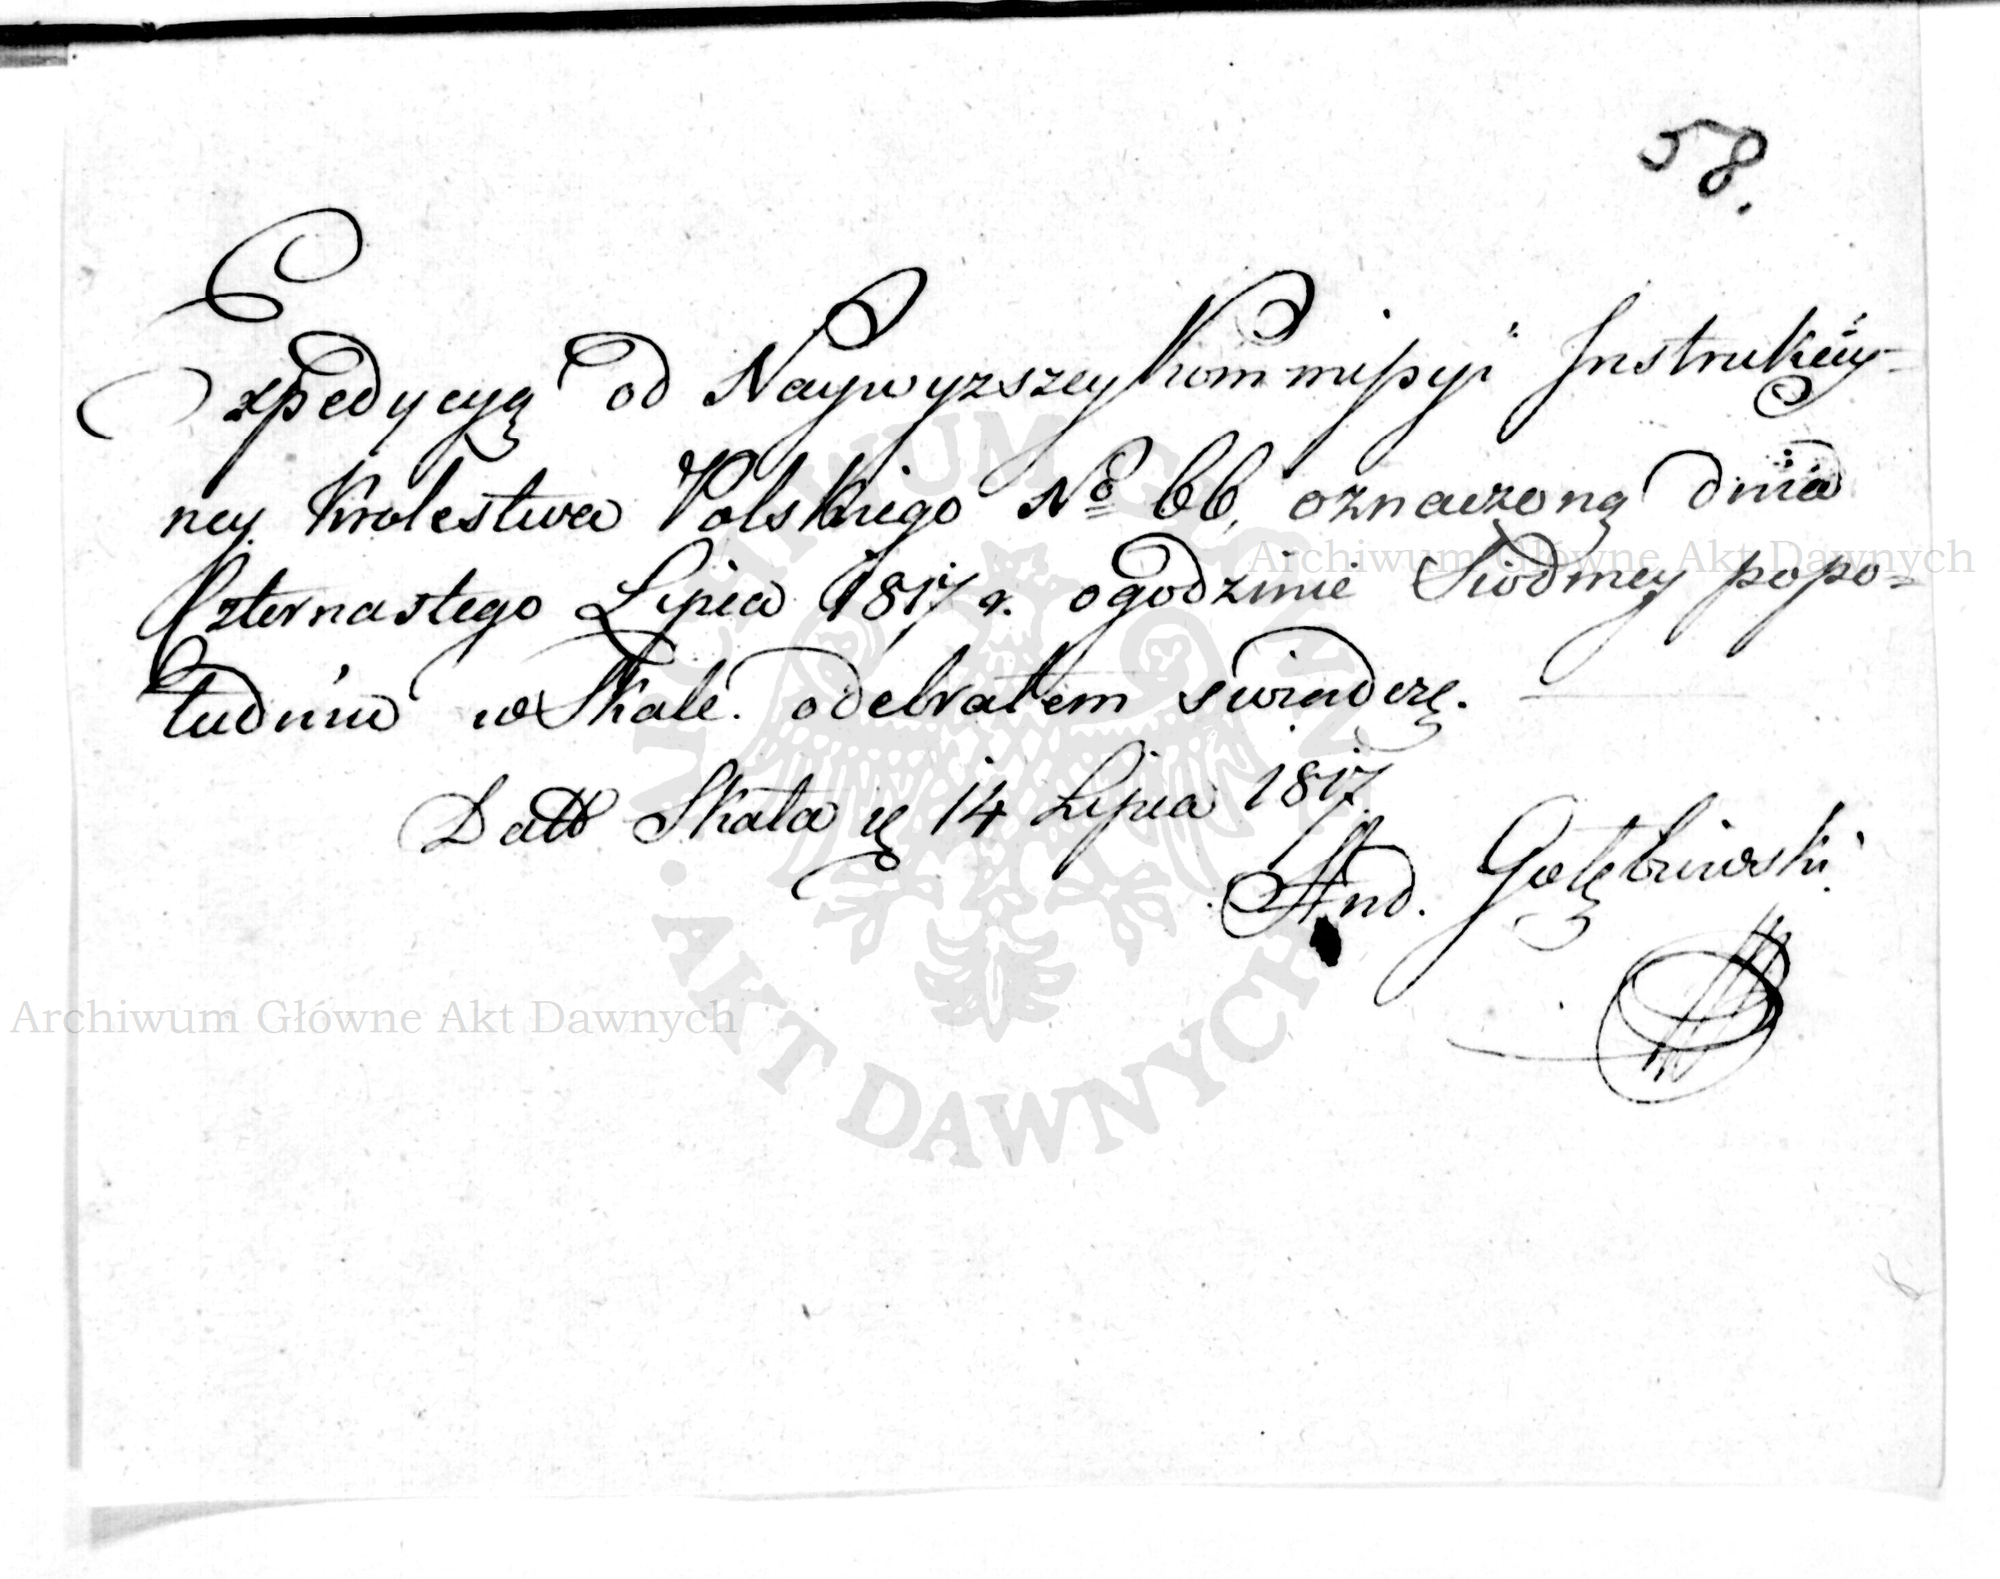 58.
Expedycyą od Naywyzszey Kommissyi Instrukcyi-
ney Krolestwa Polskiego No 66, oznaczoną dnia
Czternastego Lipca 1817 r. ogodzinie Siodmey popo=
łudniu w Skale. odebrałem swiadczę.
Datt Skała d 14 Lipca 1817
And. Gołębiowski
Archiwum Główne Akt Dawnych
Archiwum Główne Akt Dawnych
ARCHIWUM GŁÓWNE · AKT DAWNYCH